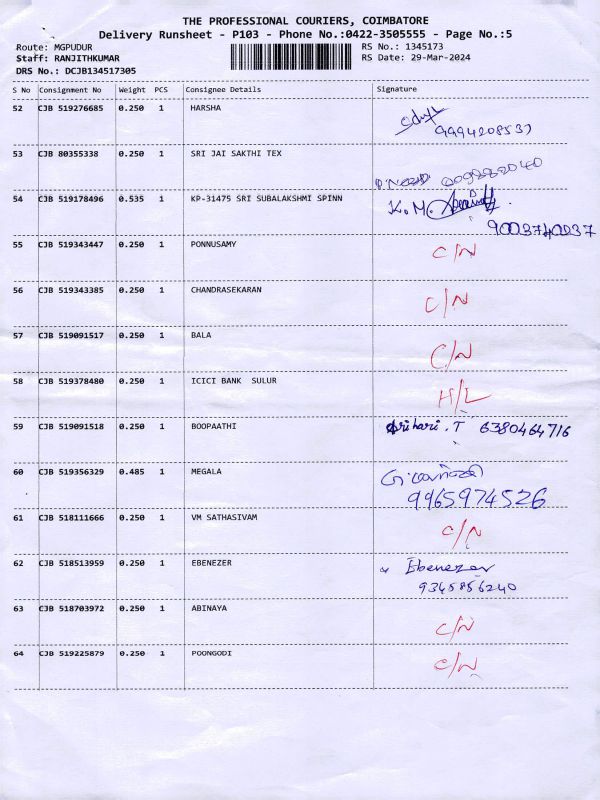 THE PROFESSIONAL COURIERS, COIMBATORE
Delivery Runsheet - P103 - Phone No.:0422-3505555 - Page No.:5
Route: MGPUDUR RS No.: 1345173
Staff: RANJITHKUMAR RS Date: 29-Mar-2024
DRS No.: DCJB134517305
S No Consignment No Weight PCS Consignee Details Signature
52 CJB 519276685 0.250 1 HARSHA
9994208537
53 CJB 80355338 0.250 1 SRI JAI SAKTHI TEX
54 CJB 519178496 0.535 1 KP-31475 SRI SUBALAKSHMI SPINN K.M.
9003740037
55 CJB 519343447 0.250 1 PONNUSAMY C/N
56 CJB 519343385 0.250 1 CHANDRASEKARAN C/N
57 CJB 519091517 0.250 1 BALA C/N
58 CJB 519378480 0.250 1 ICICI BANK SULUR H/L
59 CJB 519091518 0.250 1 BOOPAATHI Srihari.T 6380464716
60 CJB 519356329 0.485 1 MEGALA
9965974526
61 CJB 518111666 0.250 1 VM SATHASIVAM C/N
62 CJB 518513959 0.250 1 EBENEZER Ebenezer
9345856240
63 CJB 518703972 0.250 1 ABINAYA C/N
64 CJB 519225879 0.250 1 POONGODI C/N